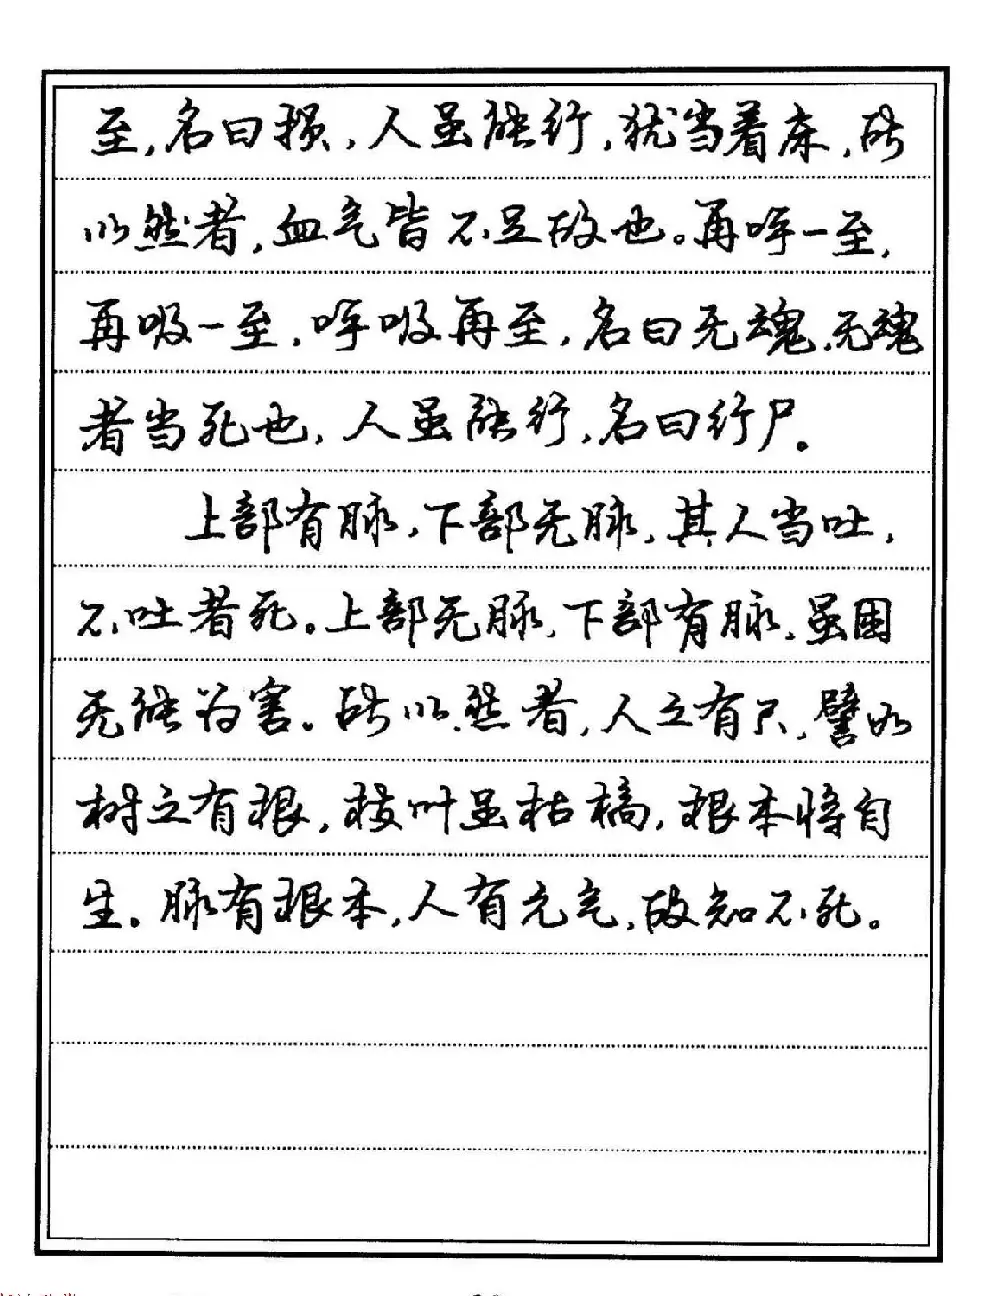 至,名曰损,人虽能行,犹当着床,所
以然者,血气皆不足故也。再呼一至,
再吸一至,呼吸再至,名曰无魂,无魂
者当死也,人虽能行,名曰行尸。
上部有脉,下部无脉,其人当吐,
不吐者死。上部无脉,下部有脉,虽困
无能为害。所以然者,人之有尺,譬如
树之有根,枝叶虽枯槁,根本将自
生。脉有根本,人有元气,故知不死。